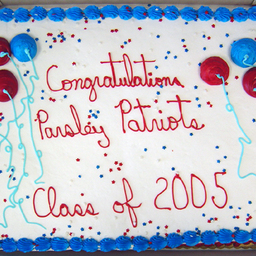 Congratulations
Parsley Patriots
Class of 2005